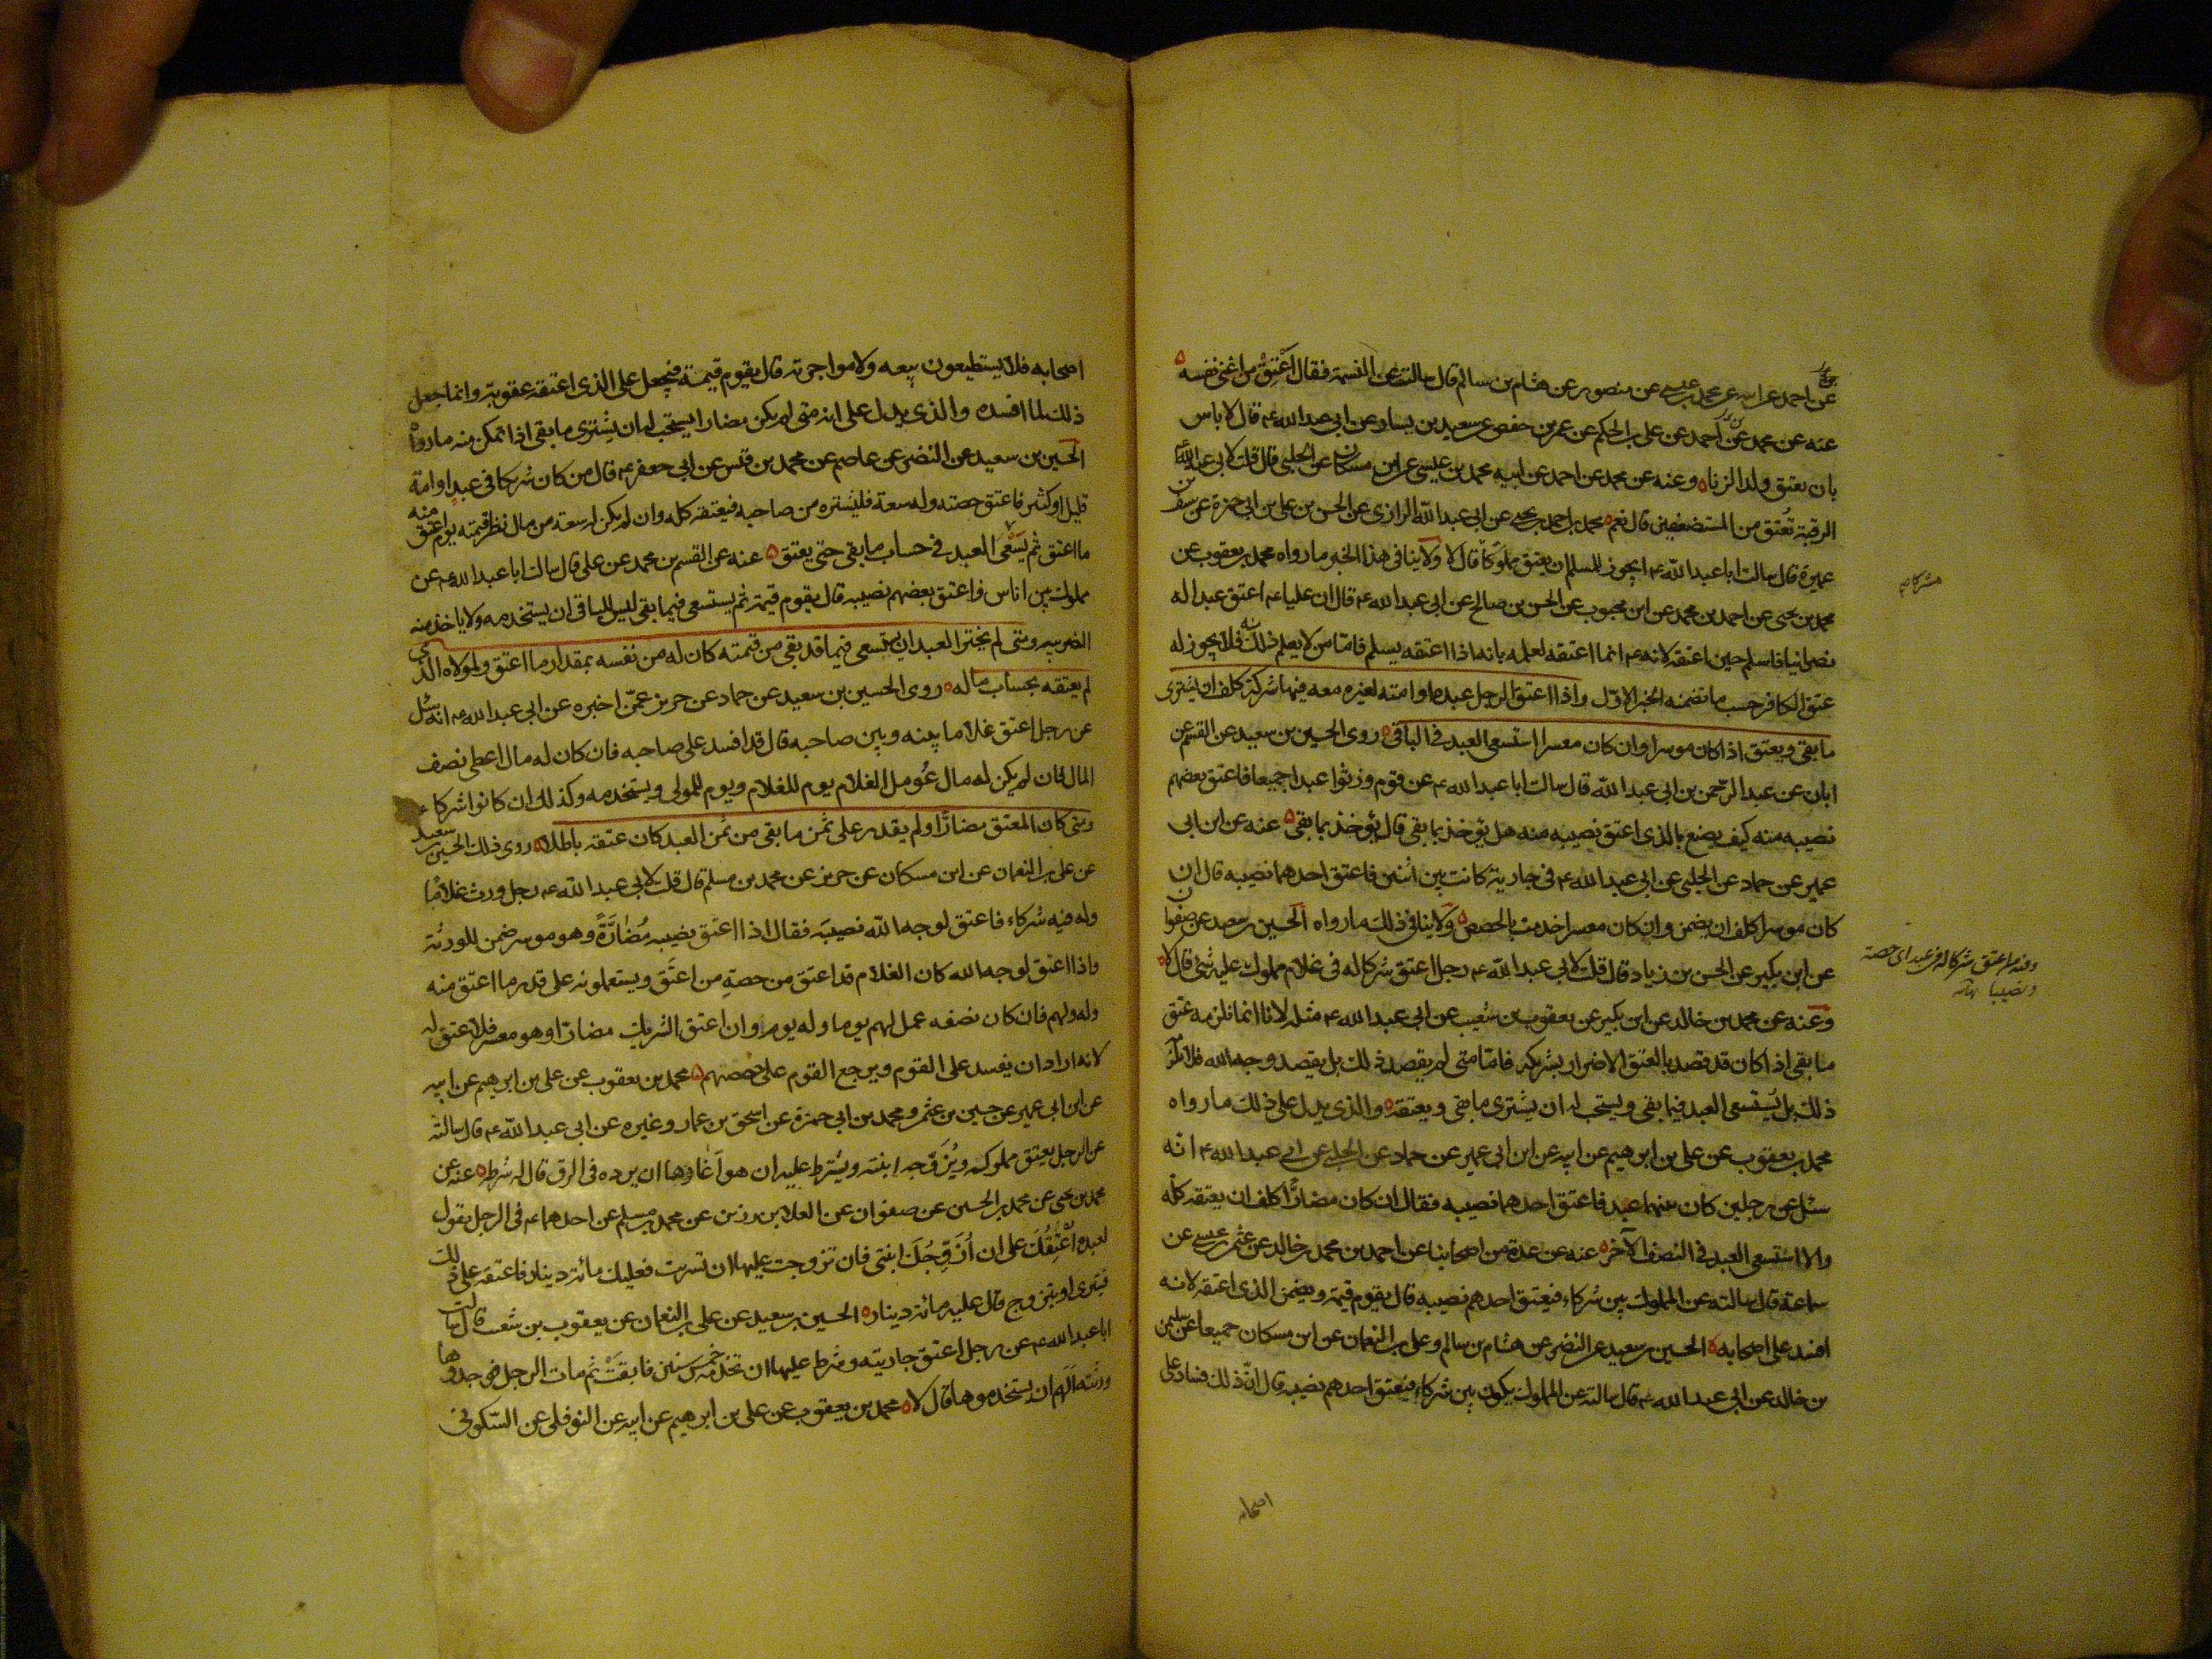 عن احمد عن ابيه عن محمد بن عيسى عن منصور عن هشام بن سالم قال سالته عن النسمة فقال اعتق من اغنى نفسه
عنه عن محمد عن احمد عن على بن الحكم عن عمر بن حفص عن سعيد بن يسار عن ابى عبد الله ع قال لا باس
بان يعتق ولد الزنا وعنه عن محمد عن احمد عن ابيه محمد بن عيسى عن ابن مسكان عن الحلبى قال قلت لابى عبد الله
الرقبة تعتق من المستضعفين قال نعم محمد بن احمد بن يحيى عن ابى عبد الله الرازى عن الحسن بن على بن ابى حمزة عن سيف بن
عميرة قال سالت ابا عبد الله ع ايجوز للمسلم ان يعتق مملوكا قال لا ولا ينافى هذا الخبر ما رواه محمد بن يعقوب عن
محمد بن يحيى عن احمد بن محمد عن ابن محبوب عن الحسن بن صالح عن ابى عبد الله ع قال ان عليا ع اعتق عبدا له
نصرانيا فاسلم حين اعتقه لانه ع انما اعتقه لعلمه بانه اذا اعتقه يسلم فاما من لا يعلم ذلك منه فلا يجوز له
عتق الكافر حسب ما تضمنه الخبر الاول واذا اعتق الرجل عبده او امته لغيره معه فيها شركة كلف ان يشترى
ما بقى ويعتق اذا كان موسرا وان كان معسرا استسعى العبد فى الباقى روى الحسين بن سعيد عن القسم عن
ابان عن عبد الرحمن بن ابى عبد الله قال سالت ابا عبد الله ع عن قوم ورثوا عبدا جميعا فاعتق بعضهم
نصيبه منه كيف يصنع بالذى اعتق نصيبه منه هل يؤخذ بما بقى قال يؤخذ بما بقى عنه عن ابن ابى
عمير عن حماد عن الحلبى عن ابى عبد الله ع فى جارية كانت بين اثنين فاعتق احدهما نصيبه قال ان
كان موسرا كلف ان يضمن وان كان معسرا خدمت بالحصص ولا ينافى ذلك ما رواه الحسين بن سعيد عن صفوان
عن ابن بكير عن الحسن بن زياد قال قلت لابى عبد الله ع رجل اعتق شركا له فى غلام مملوك عليه شئ قال لا
وعنه عن محمد بن خالد عن ابن بكير عن يعقوب بن شعيب عن ابى عبد الله ع مثله لانا انما نلزمه عتق
ما بقى اذا كان قد قصد بالعتق الاضرار بشريكه فاما متى لم يقصد ذلك بل يقصد وجه الله فلا يلزمه
ذلك بل يستسعى العبد فيما بقى ويستحب له ان يشترى ما بقى ويعتقه والذى يدل على ذلك ما رواه
محمد بن يعقوب عن على بن ابرهيم عن ابيه عن ابن ابى عمير عن حماد عن الحلبى عن ابى عبد الله ع انه
سئل عن رجلين كان بينهما عبد فاعتق احدهما نصيبه فقال ان كان مضارا كلف ان يعتقه كله
والا استسعى العبد فى النصف الآخر عنه عن عدة من اصحابنا عن احمد بن محمد بن خالد عن عثمن بن عيسى عن
سماعة قال سالته عن المملوك بين شركاء فيعتق احدهم نصيبه قال يقوم قيمة ويضمن الذى اعتقه لانه
افسد على اصحابه الحسين بن سعيد عن النضر عن هشام بن سالم وعلى بن النعمان عن ابن مسكان جميعا عن سليمن
بن خالد عن ابى عبد الله ع قال سالته عن المملوك يكون بين شركاء فيعتق احدهم نصيبه قال ان ذلك فساد على
اصحابه
مشركا
اصحابه فلا يستطيعون بيعه ولا مواجرته قال يقوم قيمة فيجعل على الذى اعتقه عقوبة وانما جعل
ذلك لما افسده والذى يدل على انه متى لم يكن مضارا يستحب له ان يشترى ما بقى اذا تمكن منه ما رواه
الحسين بن سعيد عن النضر عن عاصم عن محمد بن قيس عن ابى جعفر ع قال من كان شريكا فى عبد او امة
قليل او كثير فاعتق حصته وله سعة فليشتره من صاحبه فيعتقه كله وان لم يكن له سعة من مال نظر قيمته يوم اعتق منه
ما اعتق ثم يسعى العبد فى حساب ما بقى حتى يعتق عنه عن القسم بن محمد عن على قال سالت ابا عبد الله ع عن
مملوك بين اناس فاعتق بعضهم نصيبه قال يقوم قيمة ثم يستسعى فيما بقى ليس للباقى ان يستخدمه ولا ياخذ منه
الضريبه ومتى لم يختر العبد ان يستسعى فيما قد بقى من قيمته كان له من نفسه بمقدار ما اعتق ولمولاه الذى
لم يعتقه بحساب ما له روى الحسين بن سعيد عن حماد عن حريز عمن اخبره عن ابى عبد الله ع انه سئل
عن رجل اعتق غلاما بينه وبين صاحبه قال قد افسد على صاحبه فان كان له مال اعطى نصف
المال فان لم يكن له مال عومل الغلام يوم للغلام ويوم للمولى ويستخدمه وكذلك ان كانوا شركاء
ومتى كان المعتق مضارا ولم يقدر على ثمن ما بقى من ثمن العبد كان عتقه باطلا روى ذلك الحسين بن سعيد
عن على بن النعمان عن ابن مسكان عن حريز عن محمد بن مسلم قال قلت لابى عبد الله ع رجل ورث غلاما
وله فيه شركاء فاعتق لوجه الله نصيبه فقال اذا اعتق نصيبه مضارة وهو موسر ضمن للورثة
واذا اعتق لوجه الله كان الغلام قد اعتق من حصة من اعتق ويستعملونه على قدر ما اعتق منه
وله ولهم فان كان نصفه عمل لهم يوما وله يوم وان اعتق الشريك مضارا وهو معسر فلا عتق له
لانه اراد ان يفسد على القوم ويرجع القوم على حصصهم محمد بن يعقوب عن على بن ابرهيم عن ابيه
عن ابن ابى عمير عن حسين بن عثمن ومحمد بن ابى حمزة عن اسحق بن عمار وغيره عن ابى عبد الله ع قال سالته
عن الرجل يعتق مملوكه ويزوجه ابنته ويشترط عليه ان هو اغارها ان يرده فى الرق قال له شرطه عنه عن
محمد بن يحيى عن محمد بن الحسين عن صفوان عن العلا بن رزين عن محمد بن مسلم عن احدهما ع فى الرجل يقول
لعبده اعتقك على ان ازوجك ابنتى فان تزوجت عليها او تسريت فعليك مائة دينار فاعتقه على ذلك
فيتسرى او يتزوج قال عليه مائة دينار الحسين بن سعيد عن على بن النعمان عن يعقوب بن شعيب قال سالت
ابا عبد الله ع عن رجل اعتق جاريته وشرط عليها ان تخدمه خمس سنين فابقت ثم مات الرجل فوجدوها
ورثته الهم ان يستخدموها قال لا محمد بن يعقوب عن على بن ابرهيم عن ابيه عن النوفلى عن السكونى